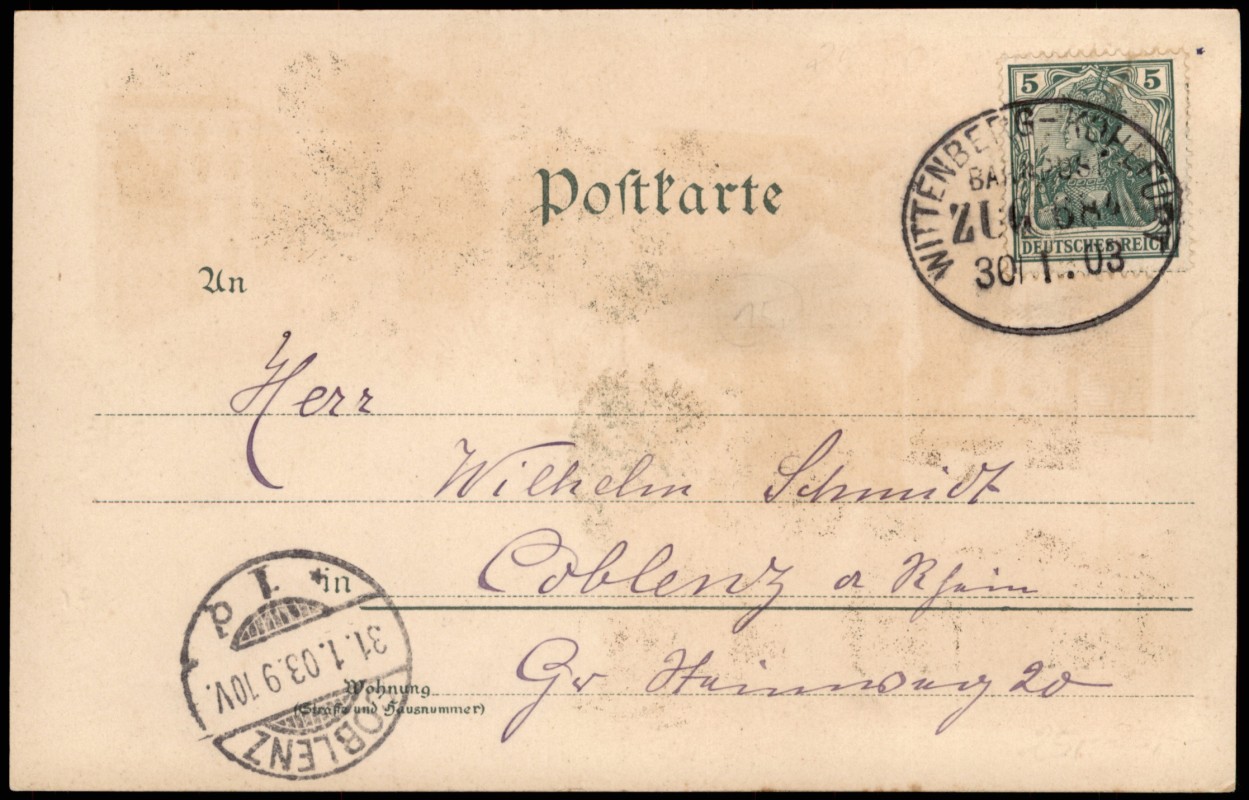 5 5
DEUTSCHES REICH
WITTENBERG-KOHLFURT
BAHNPOST
ZUG
30 1. 03
Postkarte
An
Herr
Wilhelm Schmidt
in Coblenz a Rhein
Wohnung
(Straße und Hausnummer)
Gr 20
COBLENZ
31.1.03.9 10V.
1 d